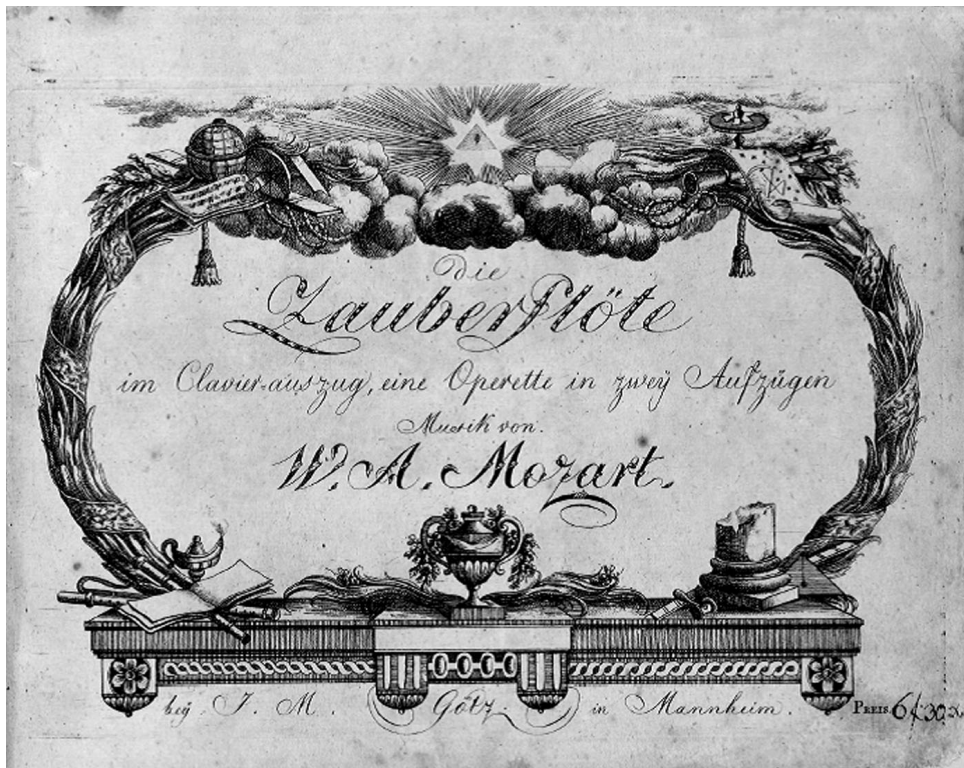 die
Zauberflöte
im Clavier-auszug, eine Operette in zweÿ Aufzügen
Musik von.
W. A. Mozart.
beÿ J. M. Götz. in Mannheim. PREIS. 6